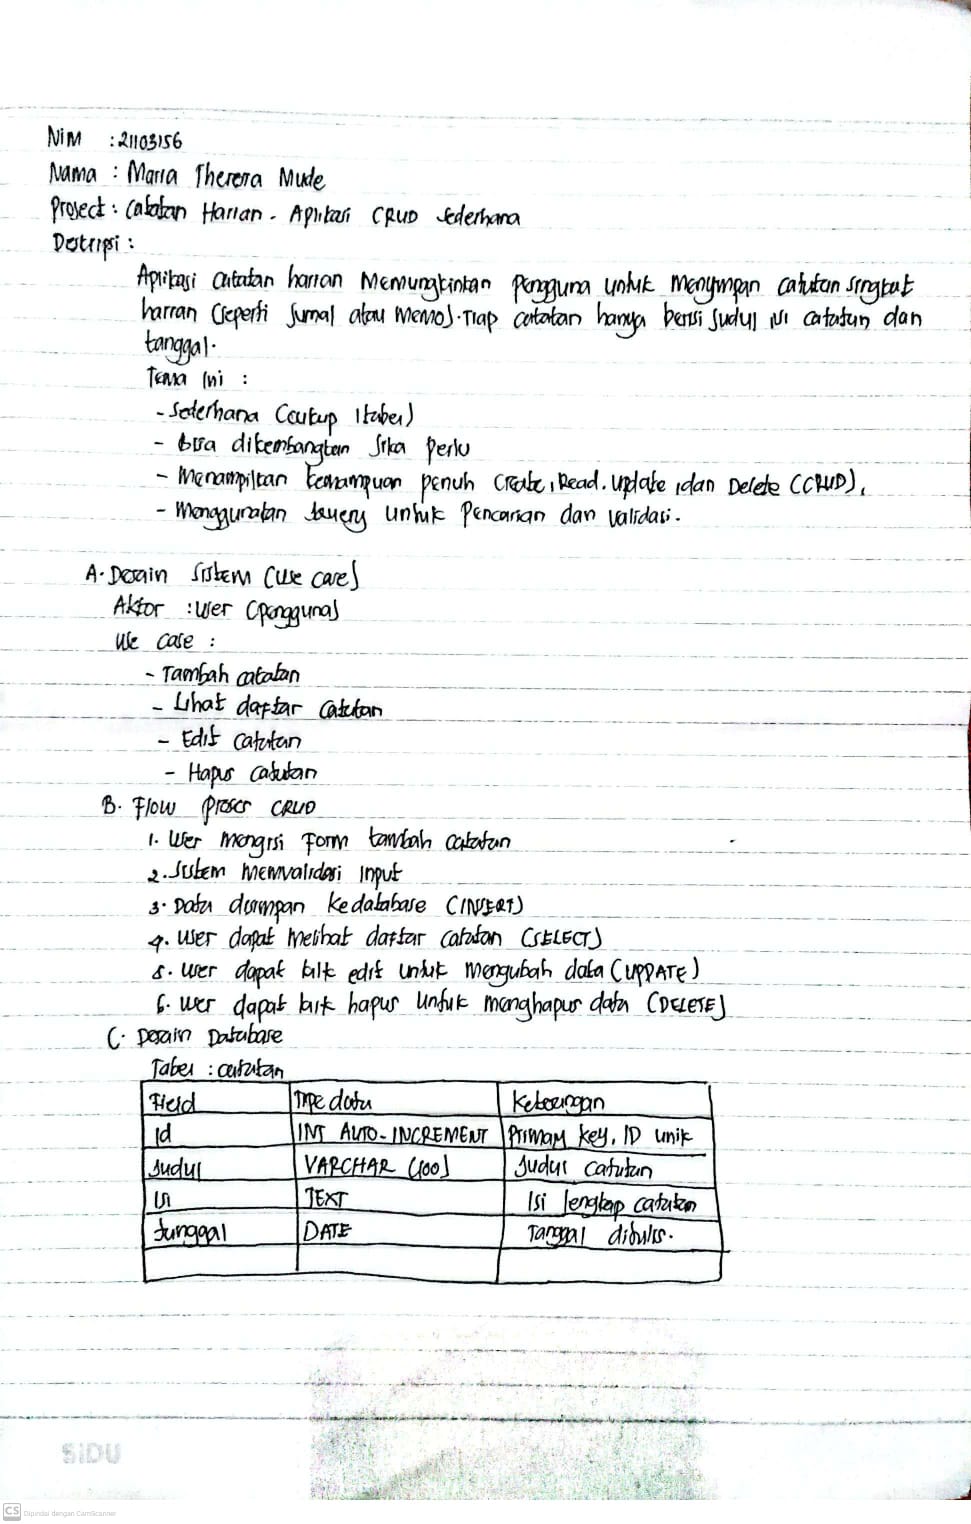 NIM : 21103156
Nama : Maria Theresa Mude
Project : Catatan Harian - Aplikasi CRUD Sederhana
Deskripsi :
Aplikasi catatan harian Memungkinkan pengguna untuk menyimpan catatan singkat
harian (seperti jurnal atau memo). Tiap catatan hanya berisi judul isi catatan dan
tanggal.
Tema ini :
- Sederhana (cukup 1 tabel)
- Bisa dikembangkan jika perlu
- Menampilkan kemampuan penuh Create, Read, Update, dan Delete (CRUD),
- Menggunakan query untuk pencarian dan validasi.
A. Desain Sistem (use case)
Aktor : User (pengguna)
Use case :
- Tambah catatan
- Lihat daftar catatan
- Edit catatan
- Hapus catatan
B. Flow proses CRUD
1. User mengisi Form tambah catatan
2. Sistem memvalidasi input
3. Data disimpan ke database (INSERT)
4. User dapat melihat daftar catatan (SELECT)
5. User dapat klik edit untuk mengubah data (UPPATE)
6. User dapat klik hapus untuk menghapus data (DELETE)
C. Desain Database
Tabel : catatan
Field Tipe data Keterangan
Id INT AUTO-INCREMENT Primary key, ID unik
Judul VARCHAR (100) Judul catatan
Isi TEXT Isi lengkap catatan
tanggal DATE Tanggal ditulis.
SiDU
CS Dipindai dengan CamScanner